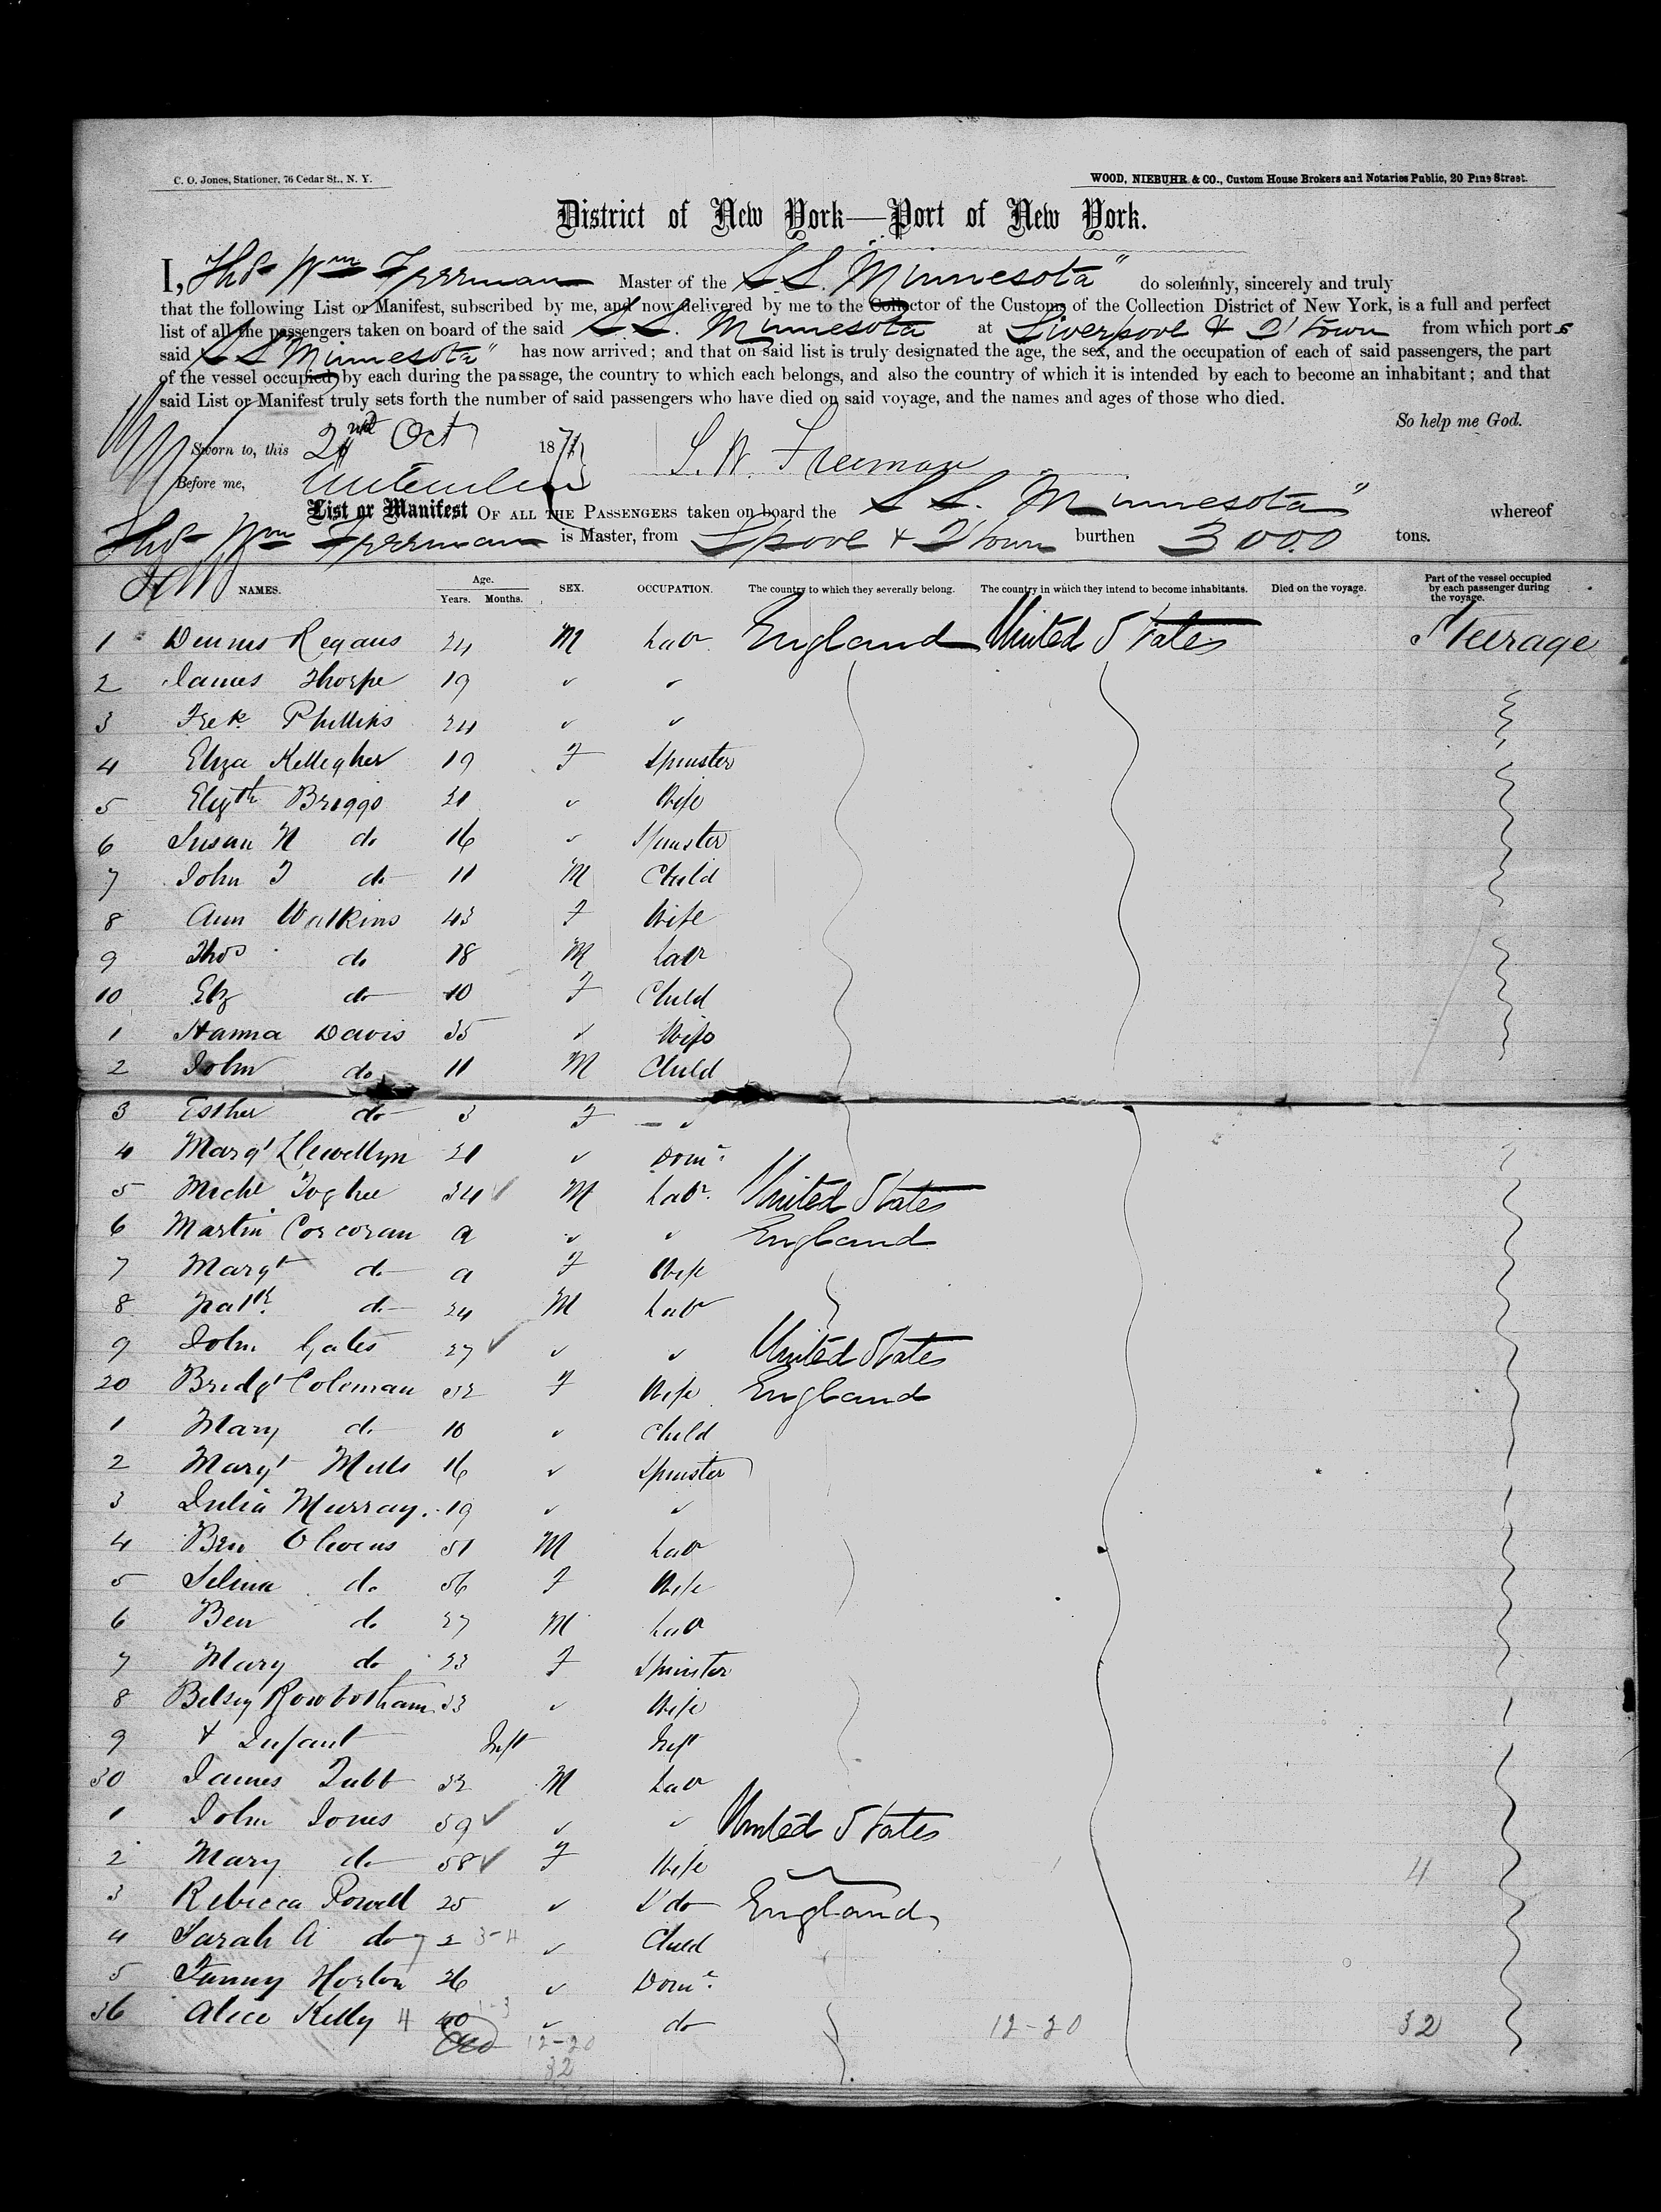 C. O. Jones, Stationer, 76 Cedar St., N. Y.
WOOD, NIEBUHR & CO., Custom House Brokers and Notaries Public, 20 Pine Street.
District of New York—Port of New York.
I, Thos Wm Freeman Master of the S.S. Minnesota" do solemnly, sincerely and truly
that the following List or Manifest, subscribed by me, and now delivered by me to the Collector of the Customs of the Collection District of New York, is a full and perfect
list of all the passengers taken on board of the said S.S. Minnesota at Liverpool & Q'town from which ports
said SS Minnesota" has now arrived; and that on said list is truly designated the age, the sex, and the occupation of each of said passengers, the part
of the vessel occupied by each during the passage, the country to which each belongs, and also the country of which it is intended by each to become an inhabitant; and that
said List or Manifest truly sets forth the number of said passengers who have died on said voyage, and the names and ages of those who died.
So help me God.
Sworn to, this 2nd Oct 1871
Before me,
S. W. Freeman
List or Manifest OF ALL THE PASSENGERS taken on board the S S. Minnesota" whereof
Thos Wm Freeman is Master, from Lpool & Q'town burthen 3000 tons.
NAMES. Age. Years. Months. SEX. OCCUPATION. The country to which they severally belong. The country in which they intend to become inhabitants. Died on the voyage. Part of the vessel occupied by each passenger during the voyage.
1 Dennis Regans 24 M Labr England United States Steerage
2 James Thorpe 19 " "
3 Fredk Phillips 24 " "
4 Eliza Kellegher 19 F Spinster
5 Elizth Briggs 31 " Wife
6 Susan N do 16 " Spinster
7 John T do 11 M Child
8 Ann Watkins 43 F Wife
9 Thos do 18 M Labr
10 Elz do 10 F Child
1 Hanna Davis 35 " Wife
2 John do 11 M Child
3 Esther do 3 F "
4 Margt Llewellyn 21 " Domc
5 Michl 34 M Labr. United States
6 Martin Corcoran a " " England
7 Margt do a F Wife
8 Patk do 24 M Labr
9 John Gates 27 " " United States
20 Bridgt Coleman 32 F Wife England
1 Mary do 10 " Child
2 Margt Mills 16 " Spinster
3 Julia Murray 19 " "
4 Ben 51 M Labr
5 Selina do 56 F Wife
6 Ben do 27 M Labr
7 Mary do 23 F Spinster
8 Betsey Rowbotham 33 " Wife
9 & Infant Inft Inft
30 James Tubb 32 M Labr
1 John Jones 59 " " United States
2 Mary do 58 F Wife 4
3 Rebecca Powell 25 " do England
4 Sarah A do 2 3-4 " Child
5 Fanny Horton 26 " Domc
36 Alice Kelly 4 40 " do 12-20 32
12-20
32